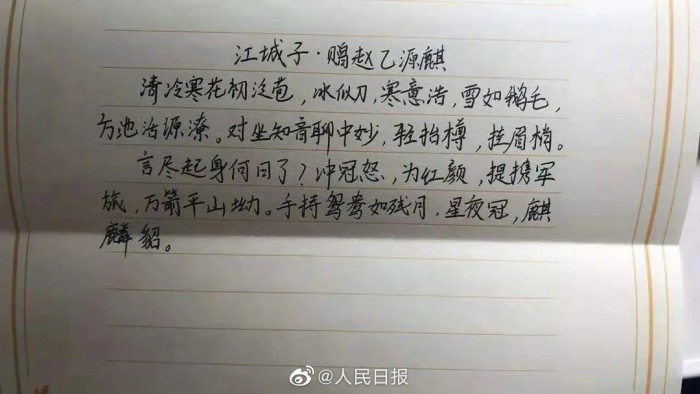 江城子·赐赵乙源麒
清冷寒花初泛苞，冰似刀，寒意浩，雪如鹅毛，
方池治源潦。对坐知音聊中妙，轻抬樽，挂眉梢。
言尽起身何日了？冲冠怒，为红颜，提携军
旅，万箭平山坳。手持鸳鸯如残月，星夜冠，麒
麟貂。
@人民日报